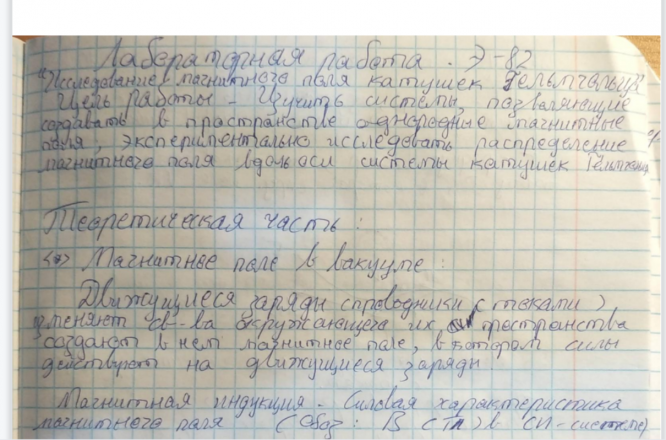 Лабораторная работа. Э-82
"Исследование магнитного поля катушек Гельмгольца"
Цель работы - Изучить системы, позволяющие
создавать в пространстве однородные магнитные
поля, экспериментально исследовать распределение
магнитного поля вдоль оси системы катушек Гельмгольца
Теоретическая часть:
Магнитное поле в вакууме:
Движущиеся заряды (проводники с токами)
изменяют св-ва окружающего их пространства
создают в нем магнитное поле, в котором силы
действуют на движущиеся заряды.
Магнитная индукция - Силовая характеристика
магнитного поля (Обоз: B (Тл) в СИ-системе)